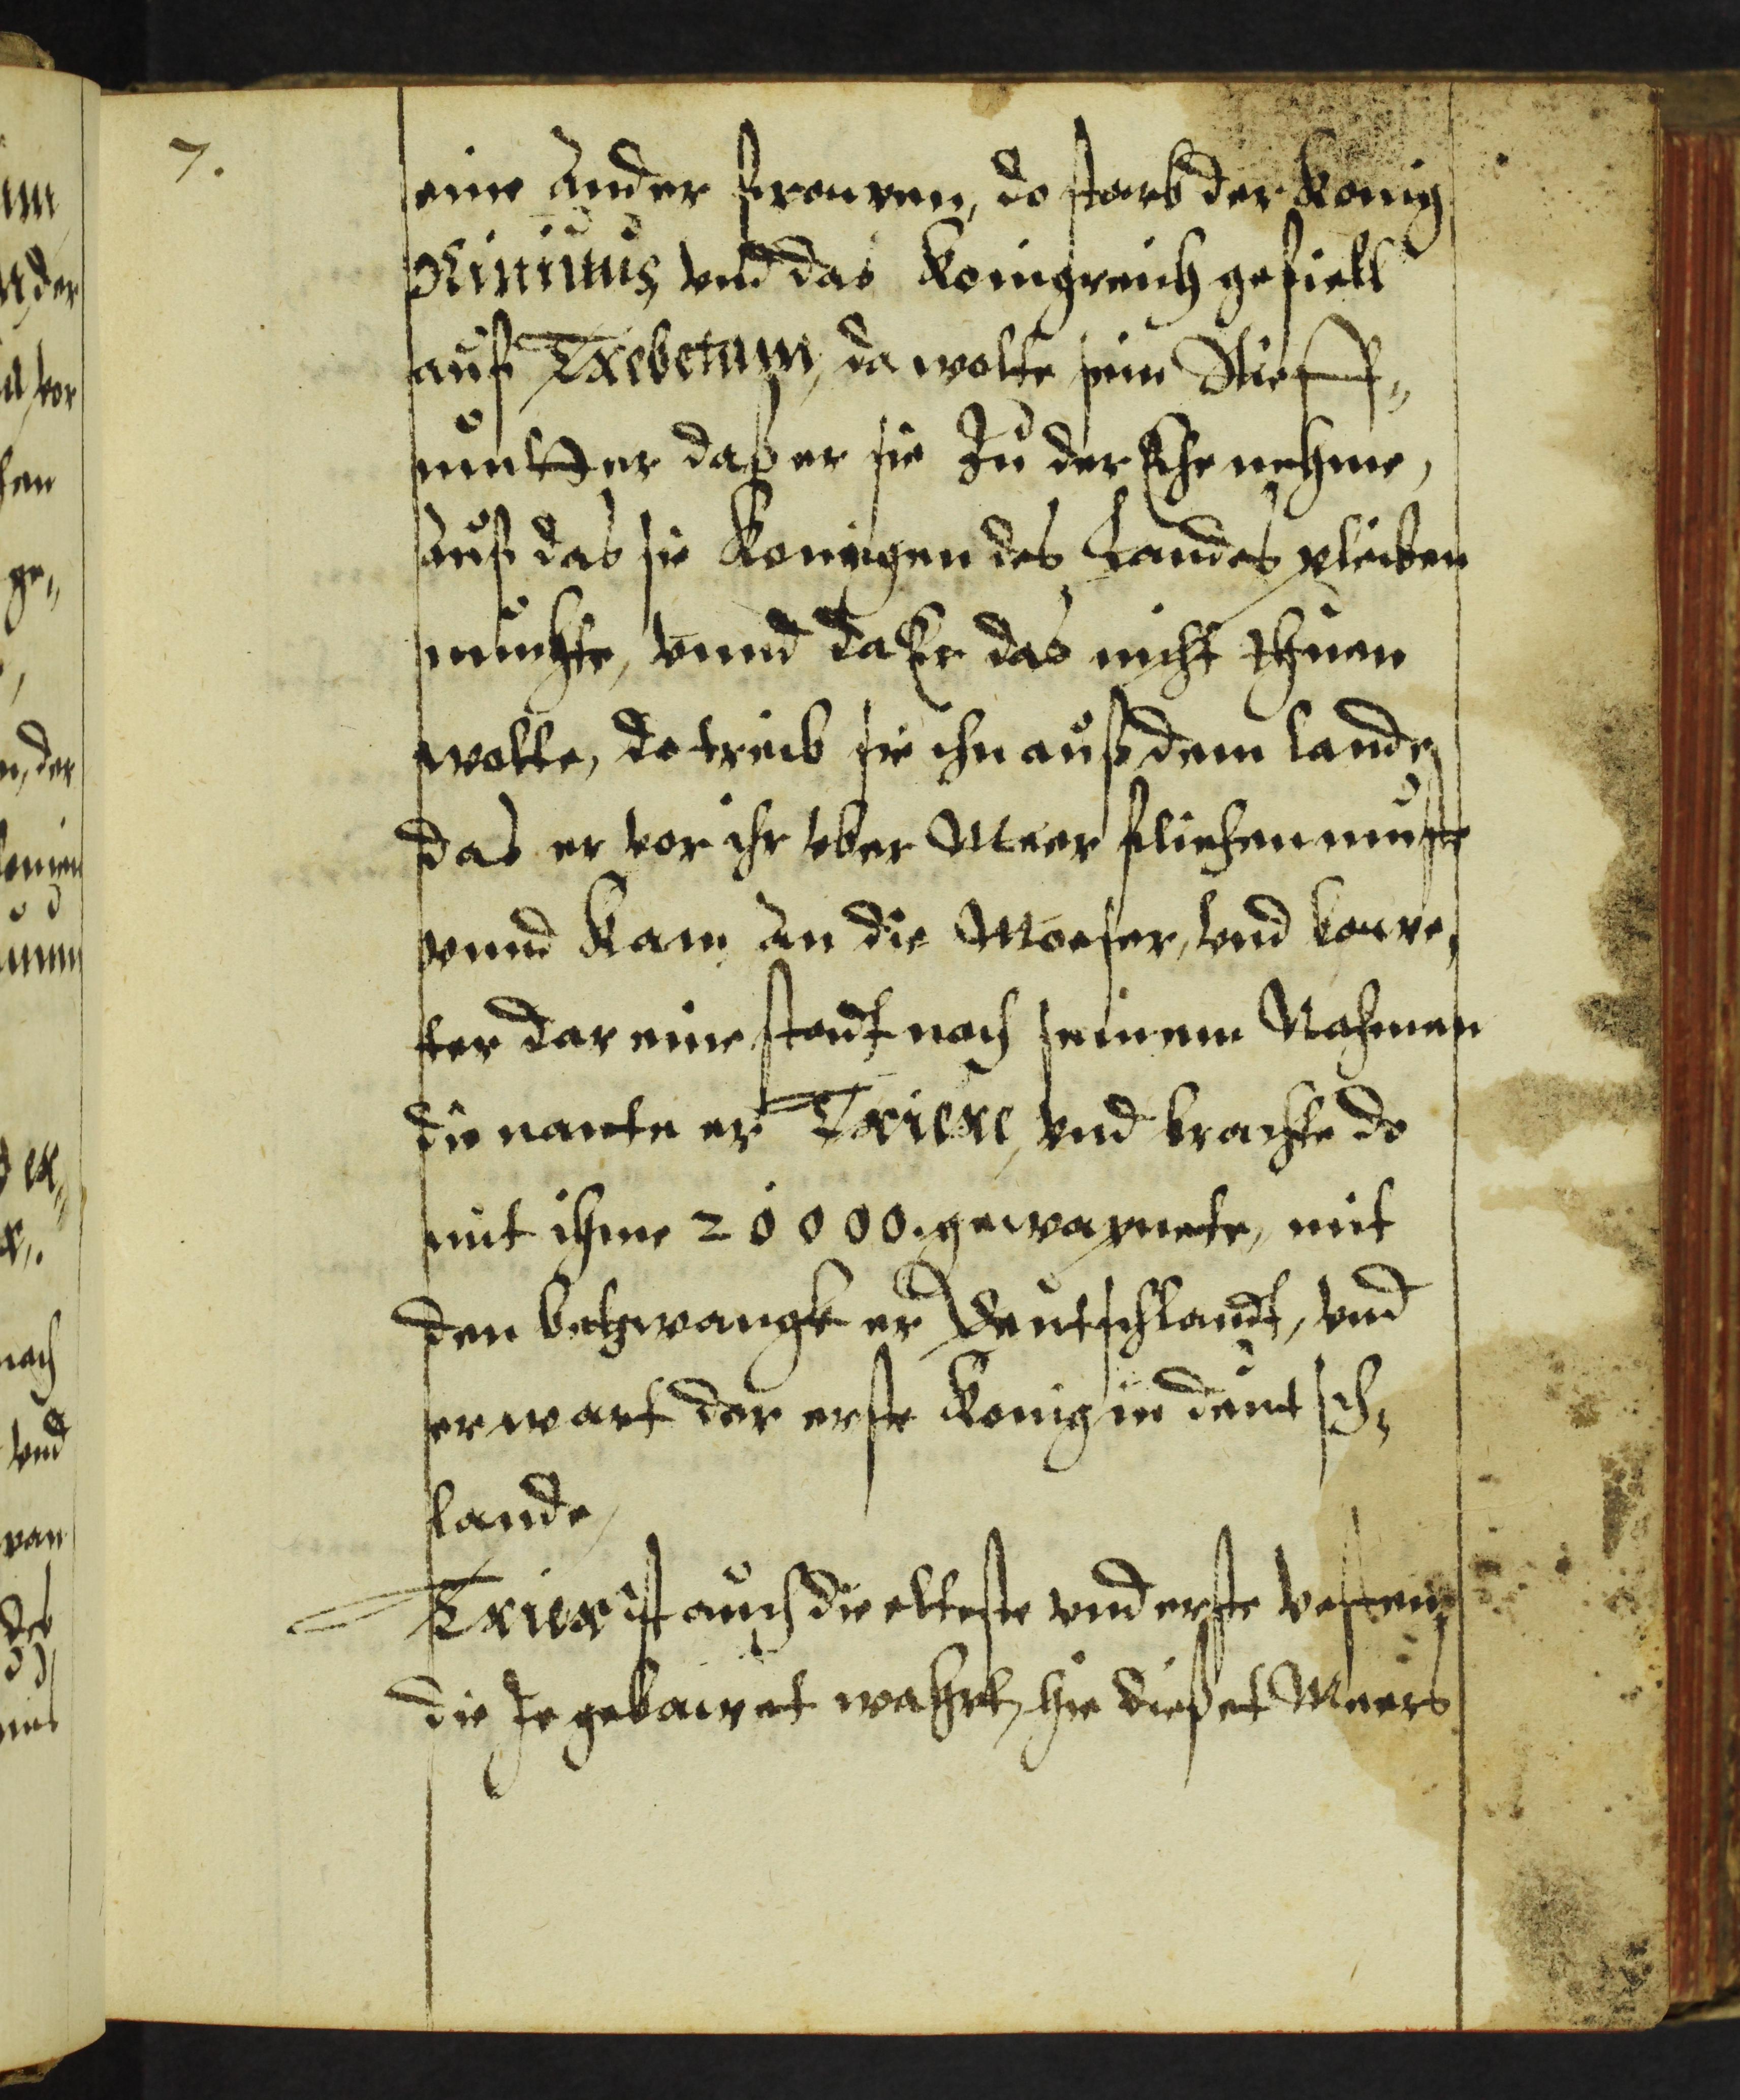 7.
eine ander frouwen, do starb der Konig
Ninitus vnd das Konigreich gefiell
auf Trebetam, da wolte sein Stieff„
mutter daß er sie zu der Ehe nehme,
auf das sie Konigen des Landes pleiben
muchte, vnnd da Er das nicht thuen
wolte, do treib sie ihn auß dem lande
das er vor ihr vber Meer fliehen muste
vnnd Kam an die Moeser, vnd bouwe„
ter dar eine stadt nach seinem Nahmen
die nante er Triere, vnd brachte do
mit ihme 20000. gewapnete, mit
den betzwangk er Deutschlandt, vnd
er wart der erste Konig in deutsch„
lande,
Trier ist auch die elteste vnd erste vesten
die Je gebawet wahrt, hie dießet Meers